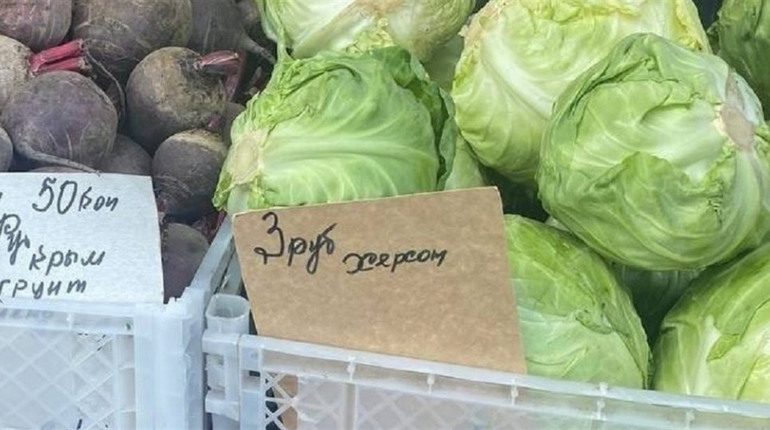 50коп
Крым
грунт
3 руб Херсон